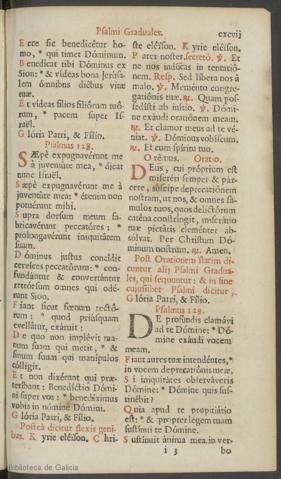 Psalmi Graduales. cxcvij
E cce sic benedicétur ho-
mo, * qui timet Dóminum.
B enedicat tibi Dóminus ex
Sion: * & videas bona Jerúsa-
lem ómnibus diébus vitæ
tuæ.
E t vídeas fílios filiórum tuó-
rum, * pacem super Is-
raël.
G lória Patri, & Fílio.
Psalmus 128.
SÆpè expugnavérunt me
à juventúte mea, * dicat
nunc Israël.
S æpè expugnavérunt me à
juventúte mea: * étenim non
potuérunt mihi.
S upra dorsum meum fa-
bricavérunt peccatóres: *
prolongavérunt iniquitátem
suam.
D óminus justus concídit
cervíces peccatórum: * con-
fundántur & convertántur
retrórsum omnes qui odé-
runt Sion.
F iant sicut fœnum tectó-
rum: * quod priúsquam
evellátur, exáruit:
D e quo non implévit ma-
num suam qui metit, * &
sinum suum qui manípulos
cólligit.
E t non dixérunt qui præ-
teríbant: Benedíctio Dómi-
ni super vos: * benedíximus
vobis in nómine Dómini.
G lória Patri, & Fílio.
Posteà dicitur flexis geni-
bus. K yrie eléison. C hri-
ste eléison. K yrie eléison.
P ater noster, secretò. ℣. Et
ne nos indúcas in tentatió-
nem. Resp. Sed líbera nos à
malo. ℣. Meménto congre-
gatiónis tuæ. ℟. Quam pos-
sedísti ab inítio. ℣. Dómi-
ne exáudi oratiónem meam.
℟. Et clamor meus ad te vé-
niat. ℣. Dóminus vobíscum.
℟. Et cum spíritu tuo.
O rémus. Oratio.
DEus, cui próprium est
miseréri semper & pár-
cere, súscipe deprecatiónem
nostram, ut nos, & omnes fá-
mulos tuos, quos delictórum
caténa constríngit, miserátio
tuæ pietátis cleménter ab-
sólvat. Per Christum Dó-
minum nostrum. ℟. Amen.
Post Orationem statim di-
cuntur alij Psalmi Gradua-
les, qui sequuntur: & in fine
cujuslibet Psalmi dicitur,
G lória Patri, & Fílio.
Psalmus 129.
DE profúndis clamávi
ad te Dómine: * Dó-
mine exáudi vocem
meam.
F iant aures tuæ intendéntes, *
in vocem deprecatiónis meæ.
S i iniquitátes observáveris
Dómine: * Dómine quis sus-
tinébit?
Q uia apud te propitiátio
est: * & propter legem tuam
sustínui te Dómine.
S ustínuit ánima mea in ver-
i 3 bo
Biblioteca de Galicia